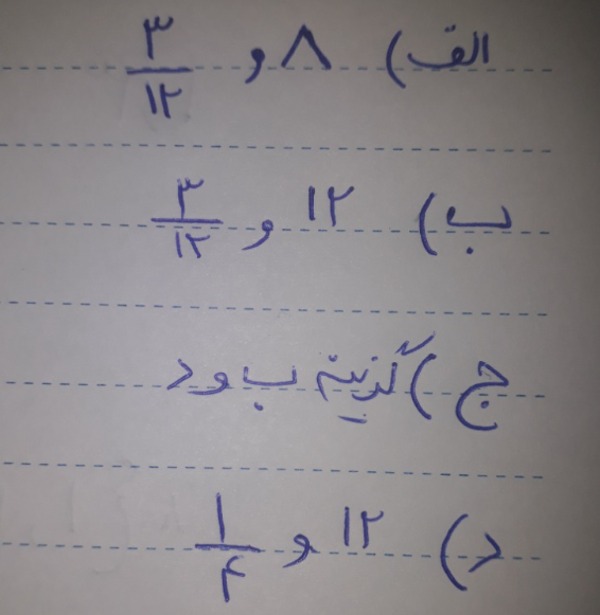 الف) ۸ و ۳/۱۲
ب) ۱۲ و ۳/۱۲
ج) گزینه ب و د
د) ۱۲ و ۱/۴